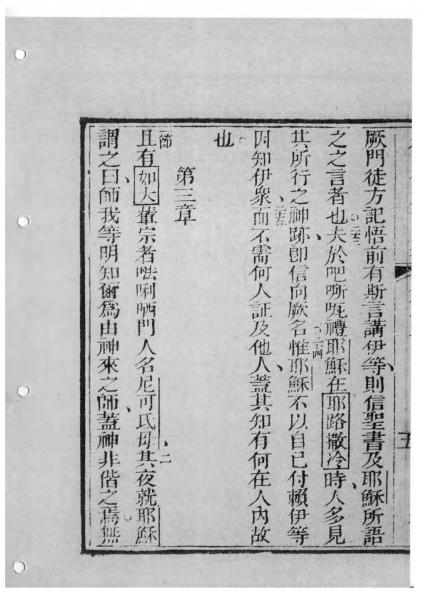 厥門徒方記悟前有斯言講伊等則信聖書及耶穌所語
之之言者也夫於吧㗭㕸禮耶穌在耶路撒冷時人多見
其所行之神跡卽信向厥名惟耶穌不以自己付賴伊等
因知伊衆而不需何人証及他人蓋其知有何在人內故
也
第三章
節且有如大輩宗者㕸唎哂門人名尼可氏母其夜就耶穌
謂之曰師我等明知爾爲由神來之師蓋神非偕之焉無